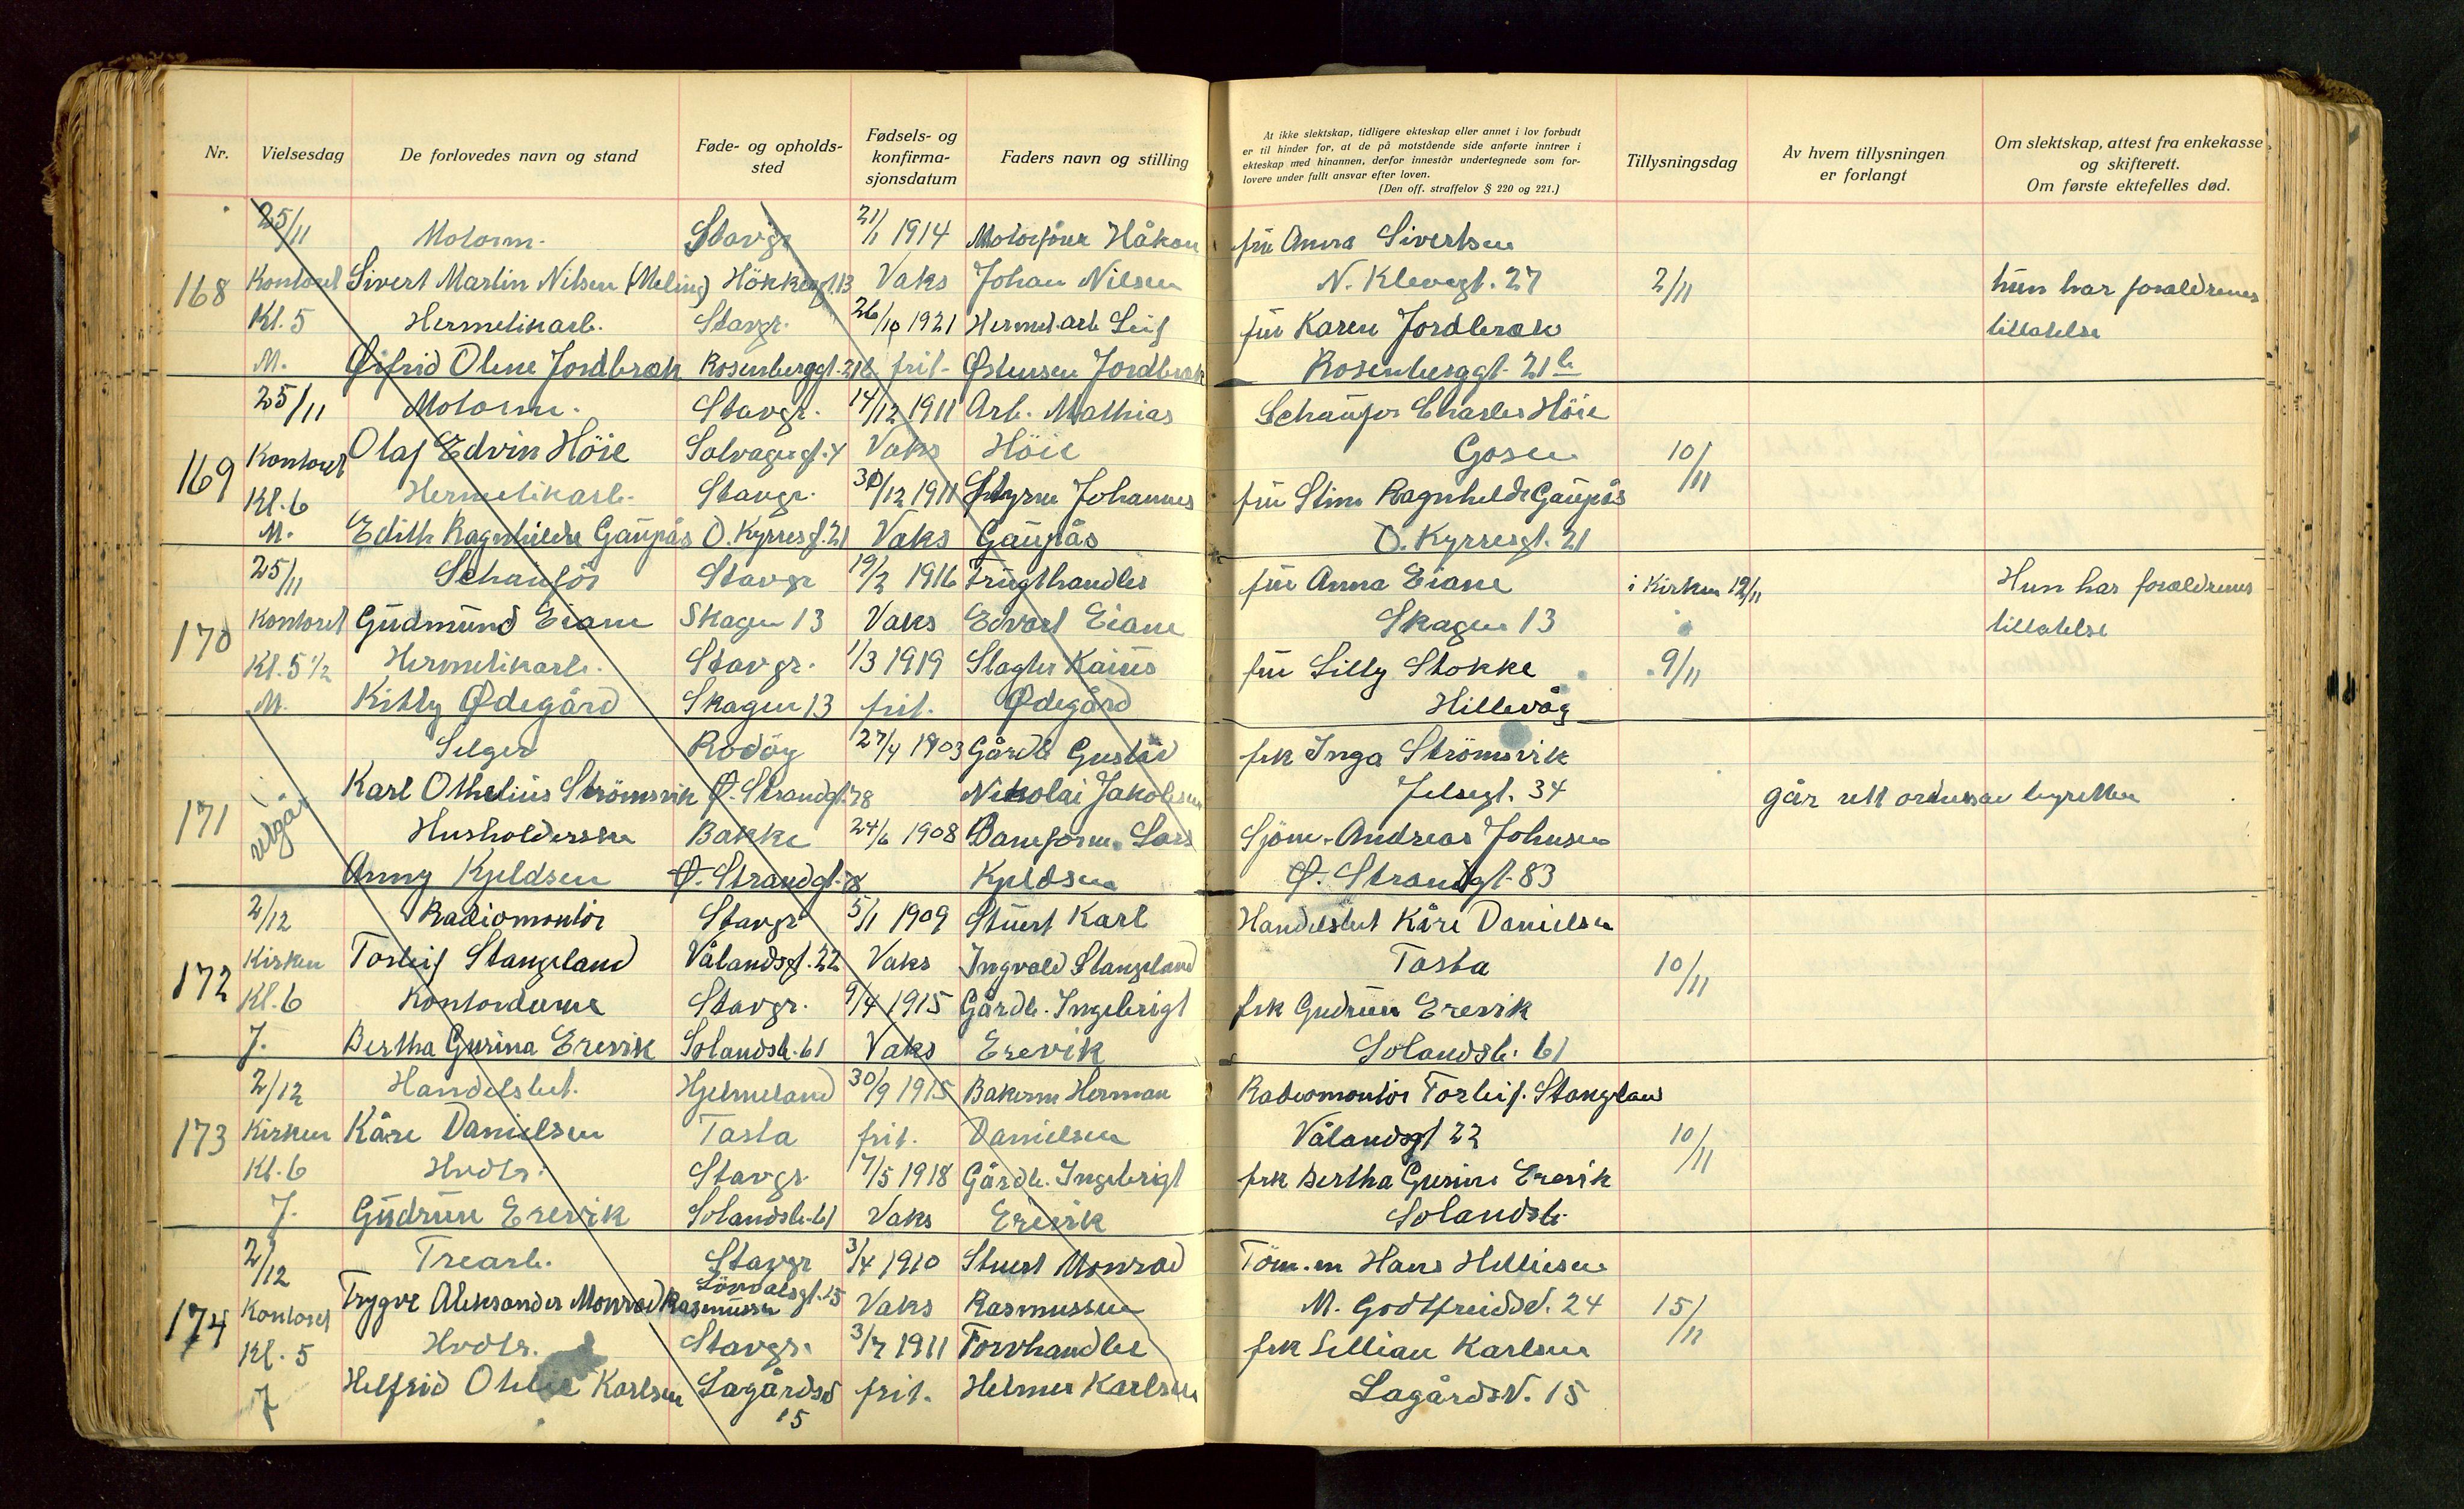 Nr.
Vielsesdag
De forlovedes navn og stand
Føde- og opholds-
sted
Fødsels- og
konfirma-
sjonsdatum
Faders navn og stilling
At ikke slektskap, tidligere ekteskap eller annet i lov forbudt
er til hinder for, at de på motstående side anførte inntrer i
ekteskap med hinannen, derfor innestår undertegnede som for-
lovere under fullt ansvar efter loven.
(Den off. straffelov § 220 og 221.)
Tillysningsdag
Av hvem tillysningen
er forlangt
Om slektskap, attest fra enkekasse
og skifterett.
Om første ektefelles død.
25/11 Motorm. Stavgr 21/1 1914 Motorfører Håkon fru Anna Sivertsen
168 Kontoret Sivert Martin Nilsen (Meling) 13 Vaks Johan Nilsen N. Klevegt. 27 2/11 hun har foreldrenes
Kl. 5 Hermetikarb. Stavgr. 26/10 1921 Hermet.arb Leif fru Karen Jordbræk tillatelse
M. Øifrid Oline Jordbræk Rosenberggt. 21b frit. Østensen Jordbræk Rosenberggt. 21b
25/11 Motorm. Stavgr. 14/12 1911 Arb. Mathias Schaufør Charles Höie
169 Kontoret Olaf Edvin Höie Solvagengt. 4 Vaks Höie Gosen 10/11
Kl. 6 Hermetikarb. Stavgr. 30/12 1911 Styrm Johannes fru Stine Ragnhilde Gaupås
M. Edith Ragnhilde Gaupås O. Kyrresgt. 21 Vaks Gaupås O. Kyrresgt. 21
25/11 Schauför Stavgr 19/2 1916 Frugthandler fru Anna Eiane i Kirken 12/11 Hun har foreldrenes
170 Kontoret Gudmund Eiane Skagen 13 Vaks Edvart Eiane Skagen 13 tillatelse
Kl. 5 1/2 Hermetikarb. Stavgr. 1/3 1919 Slagter Kaius fru Lilly Stokke 9/11
M. Kitty Ødegård Skagen 13 frit. Ødegård Hillevåg
Selger Rodöy 27/4 1903 Gårdb Gustav frk Inga Strömsvik
171 utgår Karl Othelius Strömsvik Ø. Strandgt. 78 Nikolai Jakobsen Jelsegt. 34 går rett
Husholderske Bakke 24/6 1908 Baneform. Lars Sjöm. Andreas Johnsen
Anny Kjeldsen Ø. Strandgt. 78 Kjeldsen Ø. Strandgt. 83
2/12 Radiomontör Stavgr 5/1 1909 Stuert Karl Handelsbet Kåre Danielsen
172 Kirken Torleif Stangeland Vålandsgt. 22 Vaks Ingvald Stangeland Tasta 10/11
Kl. 6 Kontordame Stavgr. 9/4 1915 Gårdb. Ingebrigt frk Gudrun Erevik
J. Bertha Gurina Erevik Solandsb. 61 Vaks Erevik Solandsb. 61
2/12 Handelsbet. Hjelmeland 30/9 1915 Bakerm Herman Radiomontör Torleif. Stangeland
173 Kirken Kåre Danielsen Tasta frit. Danielsen Vålandsgt 22 10/11
Kl. 6 Hvdtr. Stavgr. 7/5 1918 Gårdb. Ingebrigt frk Bertha Gurine Erevik
J. Gudrun Erevik Solandsb. 61 Vaks Erevik Solandsb.
2/12 Trearb. Stavgr 3/4 1910 Stuert Monrad Töm.m Hans Helliesen
174 Kontoret Trygve Aleksander Monrad Rasmussen Lövdalsgt. 15 Vaks Rasmussen M. Godtfreidsv. 24 15/11
Kl. 5 Hvdtr. Stavgr. 3/7 1911 Torvhandler frk Lillian Karlsen
J Helfrid Karlsen Lagårdsv 15 frit. Helmer Karlsen Lagårdsv. 15